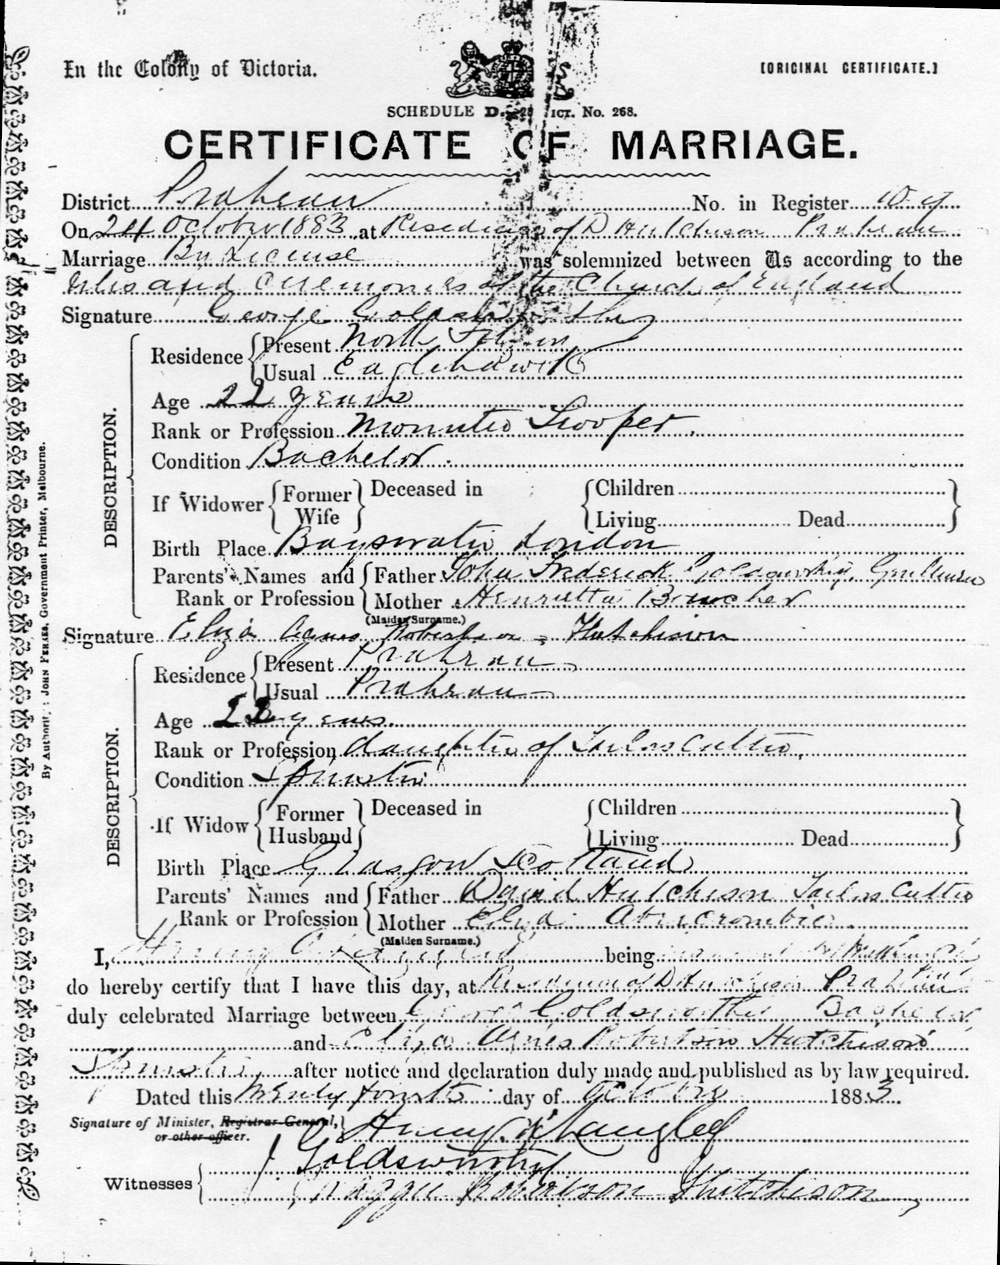 In the Colony of Victoria.
[ORIGINAL CERTIFICATE.]
SCHEDULE D. No. 268.
CERTIFICATE OF MARRIAGE.
District Prahran No. in Register
On 24 October 1883 at Residence of D Hutchison Prahran
Marriage By License was solemnized between Us according to the
rites and Ceremonies of the Church of England
Signature George Goldsworthy
DESCRIPTION.
Residence Present North
Usual Eaglehawk
Age 22 years
Rank or Profession Mounted Trooper.
Condition Bachelor.
If Widower Former Wife Deceased in Children
Living Dead
Birth Place Bayswater London
Parents' Names and Rank or Profession Father John Frederick Goldsworthy, Gentleman
Mother Henrietta Boucher
(Maiden Surname.)
Signature Eliza Agnes Robertson Hutchison
DESCRIPTION.
Residence Present Prahran
Usual Prahran
Age 22 years.
Rank or Profession daughter of Tailors Cutter
Condition Spinster
If Widow Former Husband Deceased in Children
Living Dead
Birth Place Glasgow Scotland
Parents' Names and Rank or Profession Father David Hutchison Tailors Cutter
Mother Eliza Abercrombie
(Maiden Surname.)
I, Henry being
do hereby certify that I have this day, at Residence of D Hutchison Prahran
duly celebrated Marriage between George Goldsworthy Bachelor
and Eliza Agnes Robertson Hutchison
Spinster, after notice and declaration duly made and published as by law required.
Dated this twenty fourth day of October 1883.
Signature of Minister, Registrar-General, or other officer. Henry Langley
Witnesses J Goldsworthy
Maggie Robertson Hutchison
By Authority: JOHN FERRES, Government Printer, Melbourne.